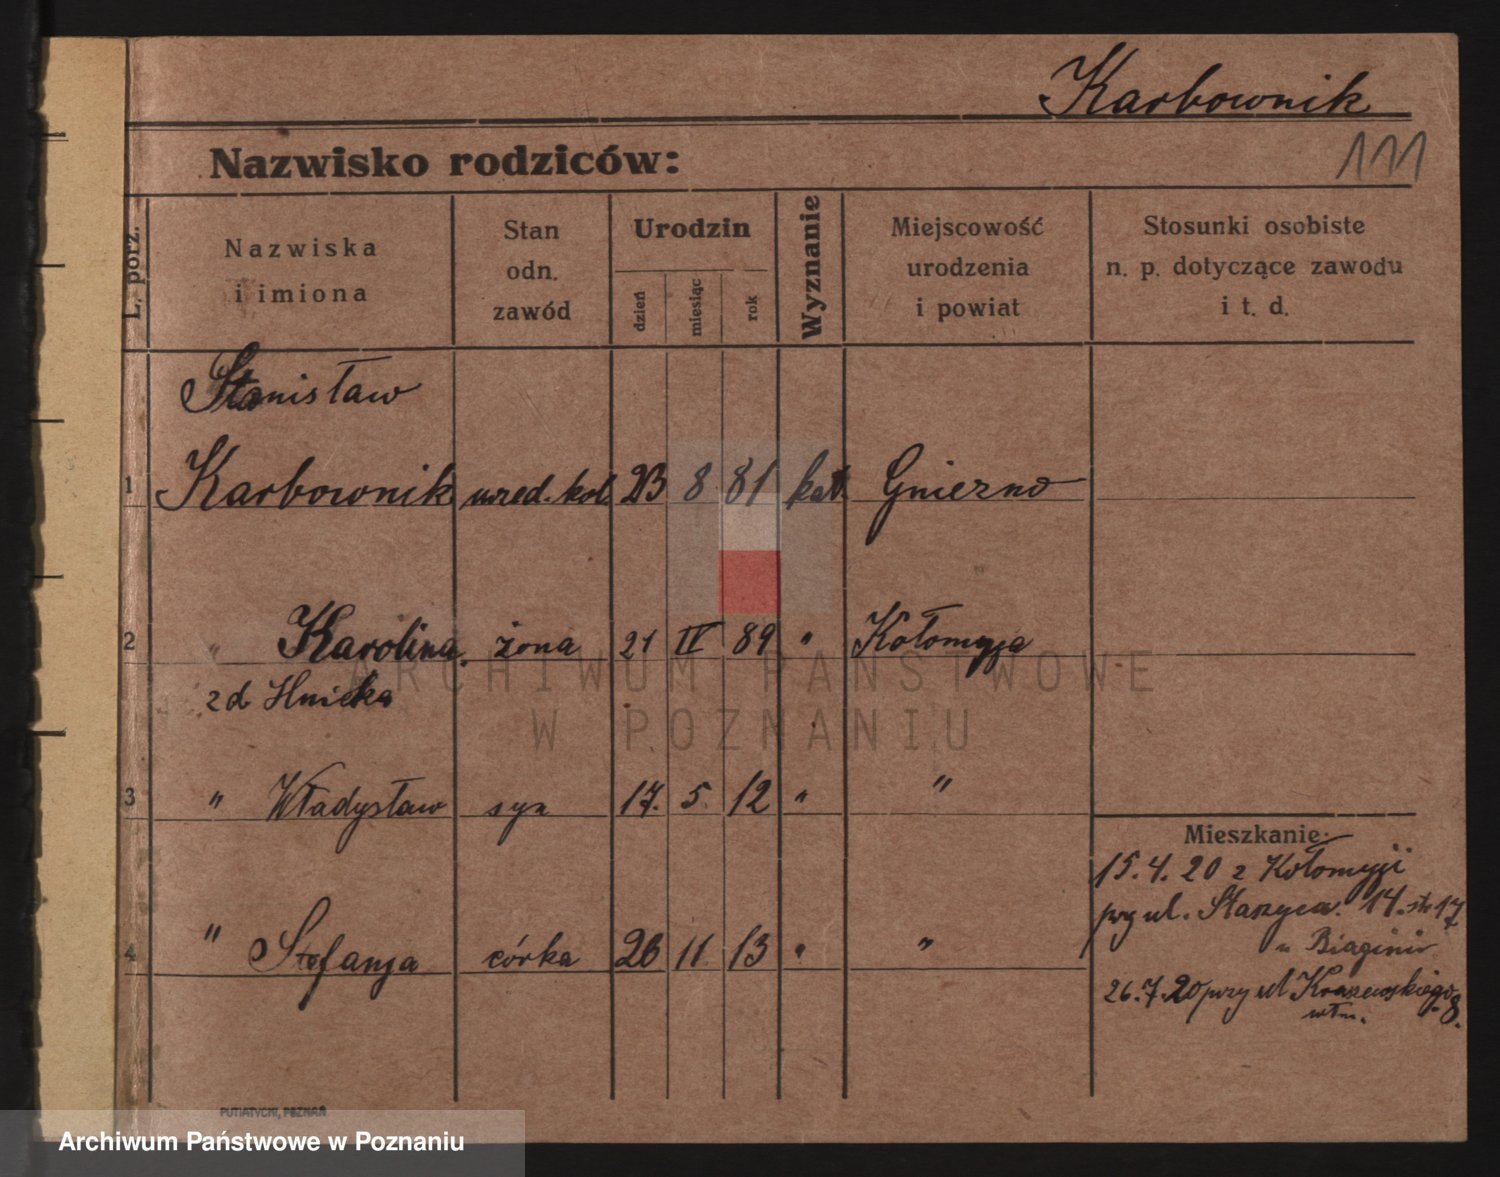 Karbownik
111
Nazwisko rodziców:
L. porz.
Nazwiska
i imiona
Stan
odn.
zawód
Urodzin
dzień
miesiąc
rok
Wyznanie
Miejscowość
urodzenia
i powiat
Stosunki osobiste
n. p. dotyczące zawodu
i t. d.
Stanisław
1 Karbownik urzed. kol. 23 8 81 kat. Gniezno
2 " Karolina żona 21 IV 89 " Kołomyja
z d
3 " Władysław syn 17. 5. 12 " "
4 " Stefanja córka 26 11 13 " "
Mieszkanie:
15. 4. 20 z Kołomyji
przy ul. Staszyca. 14. 17
u
26. 7. 20 przy ul Kraszewskiego 8.
PUTIATYCKI, POZNAŃ
ARCHIWUM PAŃSTWOWE
W POZNANIU
Archiwum Państwowe w Poznaniu